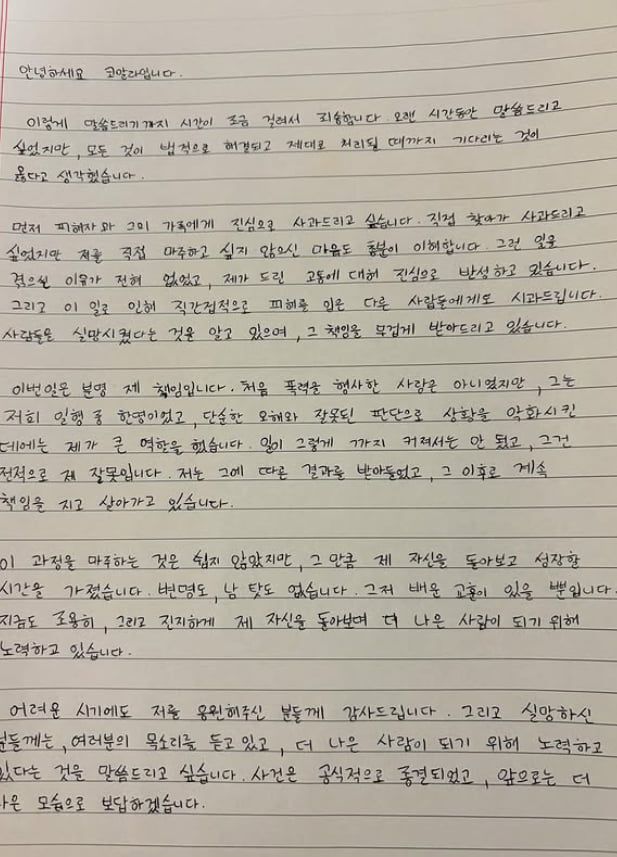 안녕하세요 코알라입니다.
이렇게 말씀드리기까지 시간이 조금 걸려서 죄송합니다. 오랜 시간동안 말씀드리고
싶었지만, 모든 것이 법적으로 해결되고 제대로 처리될 때까지 기다리는 것이
옳다고 생각했습니다.
먼저 피해자와 그의 가족에게 진심으로 사과드리고 싶습니다. 직접 찾아가 사과드리고
싶었지만 저를 직접 마주하고 싶지 않으신 마음도 충분이 이해합니다. 그런 일을
겪으실 이유가 전혀 없었고, 제가 드린 고통에 대해 진심으로 반성하고 있습니다.
그리고 이 일로 인해 직간접적으로 피해를 입은 다른 사람들에게도 사과드립니다.
사람들을 실망시켰다는 것을 알고 있으며, 그 책임을 무겁게 받아드리고 있습니다.
이번일은 분명 제 책임입니다. 처음 폭력을 행사한 사람은 아니였지만, 그는
저희 일행 중 한명이었고, 단순한 오해와 잘못된 판단으로 상황을 악화시킨
데에는 제가 큰 역할을 했습니다. 일이 그렇게 까지 커져서는 안 됐고, 그건
전적으로 제 잘못입니다. 저는 그에 따른 결과를 받아들였고, 그 이후로 계속
책임을 지고 살아가고 있습니다.
이 과정을 마주하는 것은 쉽지 않았지만, 그 만큼 제 자신을 돌아보고 성장한
시간을 가졌습니다. 변명도, 남 탓도 없습니다. 그저 배운 교훈이 있을 뿐입니다.
지금도 조용히, 그리고 진지하게 제 자신을 돌아보며 더 나은 사람이 되기 위해
노력하고 있습니다.
어려운 시기에도 저를 응원해주신 분들께 감사드립니다. 그리고 실망하신
분들께는, 여러분의 목소리를 듣고 있고, 더 나은 사람이 되기 위해 노력하고
있다는 것을 말씀드리고 싶습니다. 사건은 공식적으로 종결되었고, 앞으로는 더
나은 모습으로 보답하겠습니다.